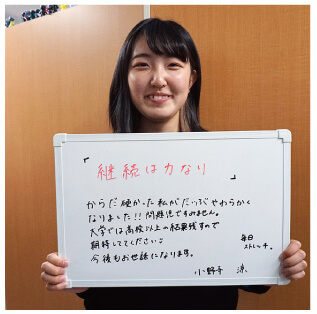 「継続は力なり」
からだ硬かった私がだいぶやわらかく
なりました!! 問題児ですみません。
大学では高校以上の結果残すので
期待しててください
今後もお世話になります。
毎日
ストレッチ。
小野寺 涼